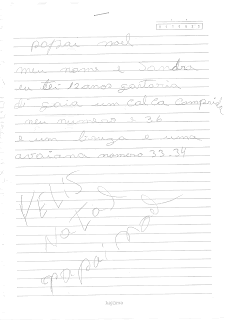 papai noel
meu nome e Sandra
eu tei 12 anos gostoria
di gaia um calca comprid
meu numero e 36
e um bruza e uma
avaiana nomoro 33.34
VELIS
Natad
papai noel